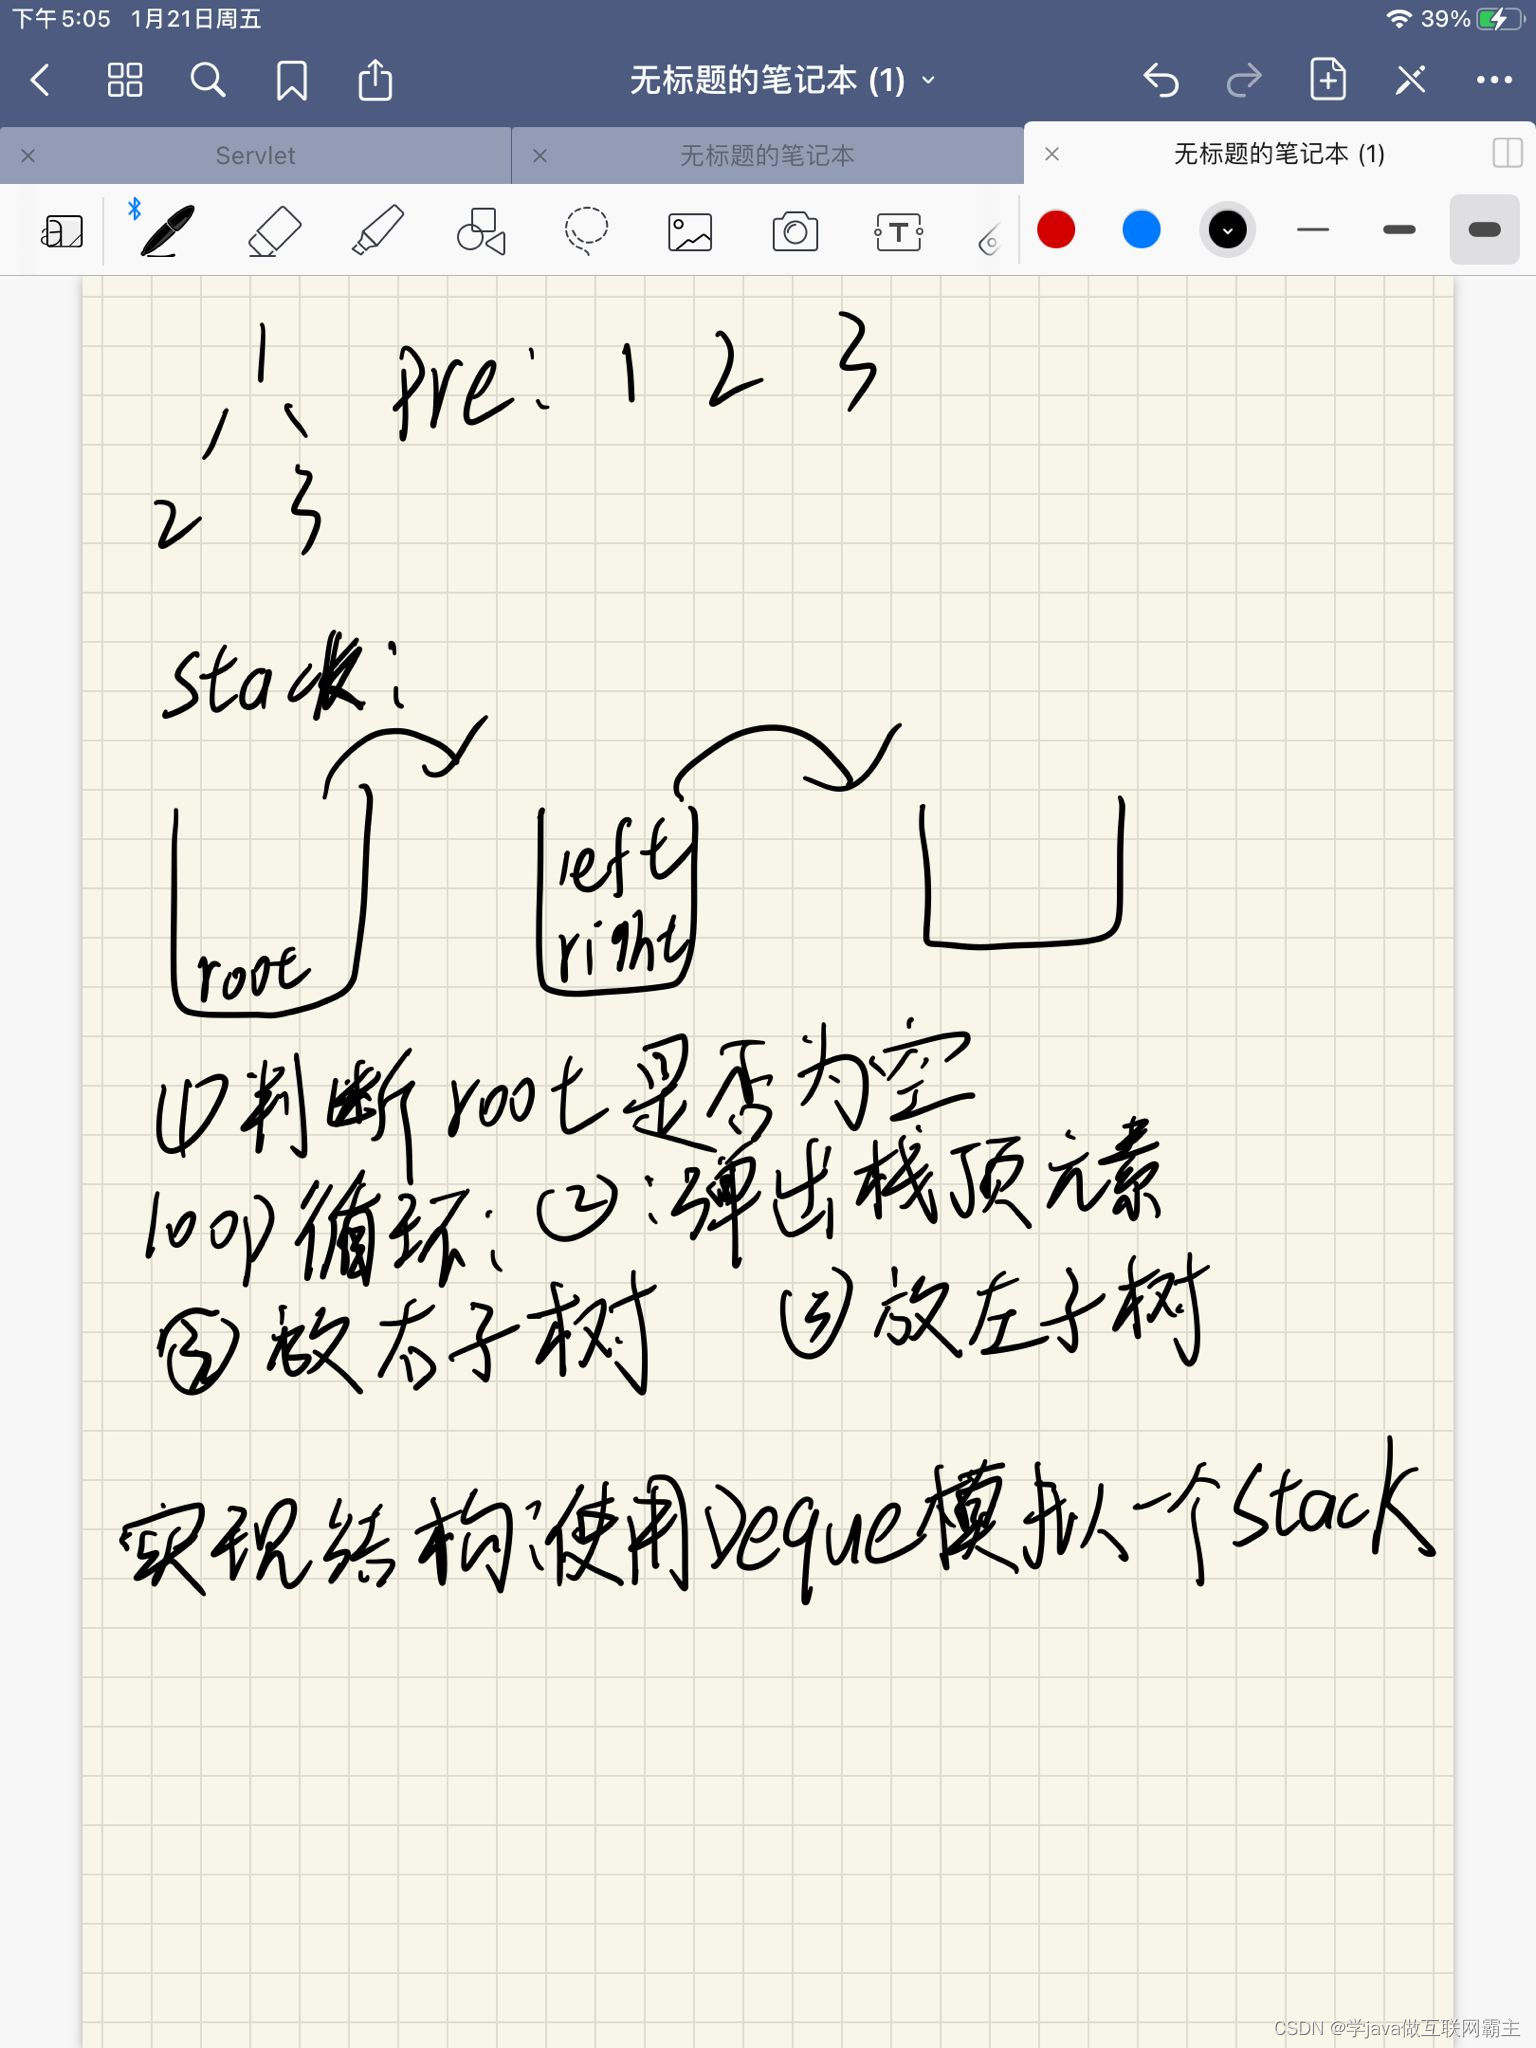 下午5:05 1月21日周五 39%
无标题的笔记本 (1)
Servlet 无标题的笔记本 无标题的笔记本 (1)
T
1 Pre: 1 2 3
2 3
stack:
root left right
①判断root是否为空
loop循环: ②:弹出栈顶元素
③放右子树 ③放左子树
实现结构:使用Deque模拟一个Stack
CSDN @学java做互联网霸主